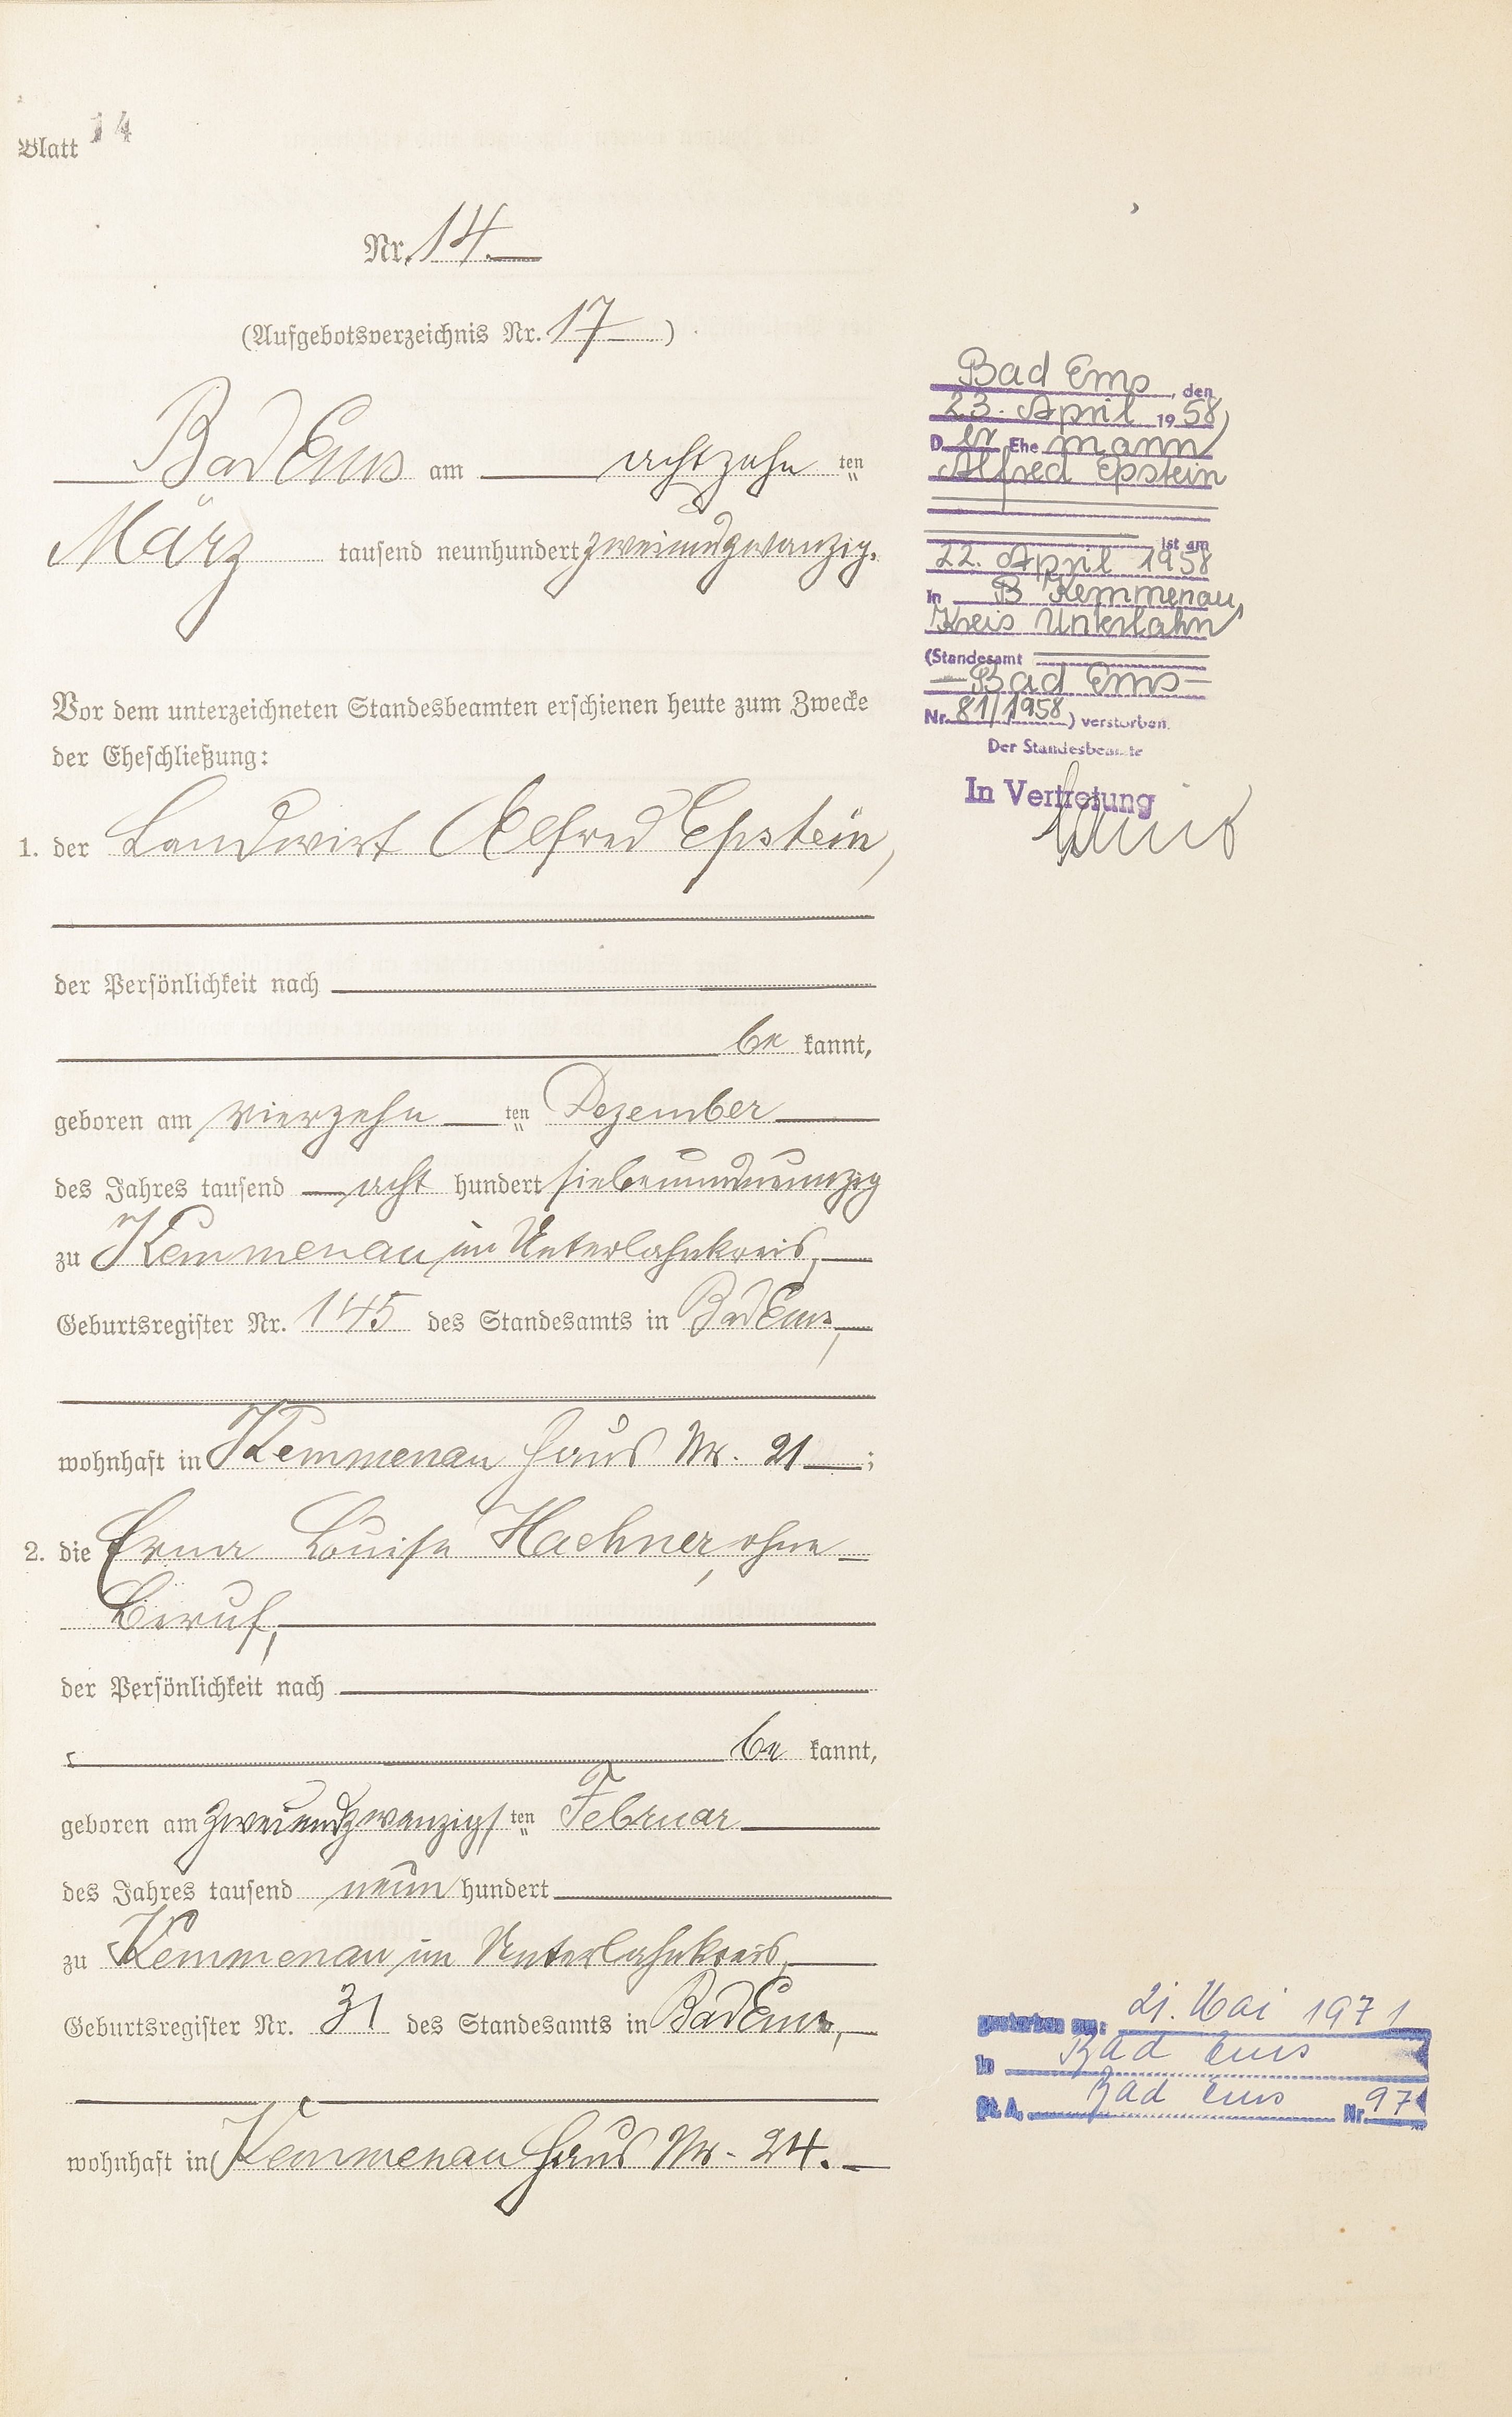 Blatt 14
Nr. 14.
(Aufgebotsverzeichnis Nr. 17)
Bad Ems am achtzehn ten
März tausend neunhundert zweiundzwanzig.
Vor dem unterzeichneten Standesbeamten erschienen heute zum Zwecke
der Eheschließung:
1. der Landwirt Alfred Epstein,
der Persönlichkeit nach
be kannt,
geboren am vierzehn ten Dezember
des Jahres tausend acht hundert siebenundneunzig
zu Kemmenau im Unterlahnkreis,
Geburtsregister Nr. 145 des Standesamts in Bad Ems,
wohnhaft in Kemmenau Haus Nr. 21 ;
2. die Erna Louise Hachner, ohne
Beruf,
der Persönlichkeit nach
be kannt,
geboren am zweiundzwanzigs ten Februar
des Jahres tausend neun hundert
zu Kemmenau im Unterlahnkreis,
Geburtsregister Nr. 31 des Standesamts in Bad Ems,
wohnhaft in Kemmenau Haus Nr. 24.
Bad Ems, den
23. April 1958
Der Ehemann
Alfred Epstein
ist am
22. April 1958
in Kemmenau,
Kreis Unterlahn
(Standesamt
Bad Ems
Nr. 81/1958) verstorben.
Der Standesbeamte
In Vertretung
gestorben am: 21. Mai 1971
in Bad Ems
St. A. Bad Ems Nr. 97